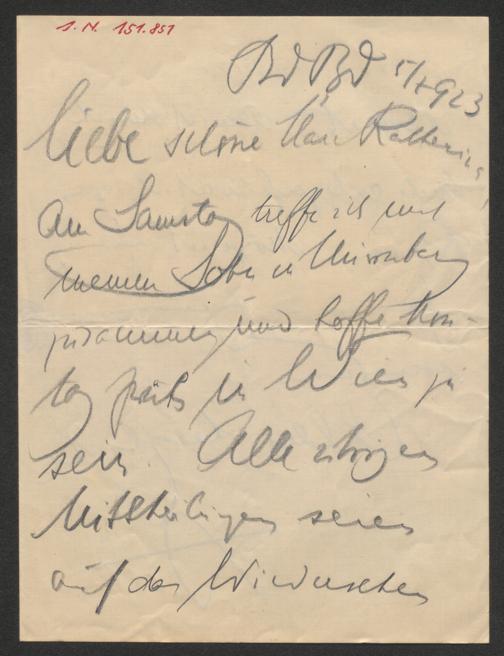 I. N. 151.851
5/X 923
liebe schöne Frau Katharina,
An Samstag treffe ich mit
meinem Sohn in Nürnberg
zusammen und hoffe Mon-
tag früh in Wien zu
sein. Alle übrigen
Mittheilungen seien
auf das Wiedersehen